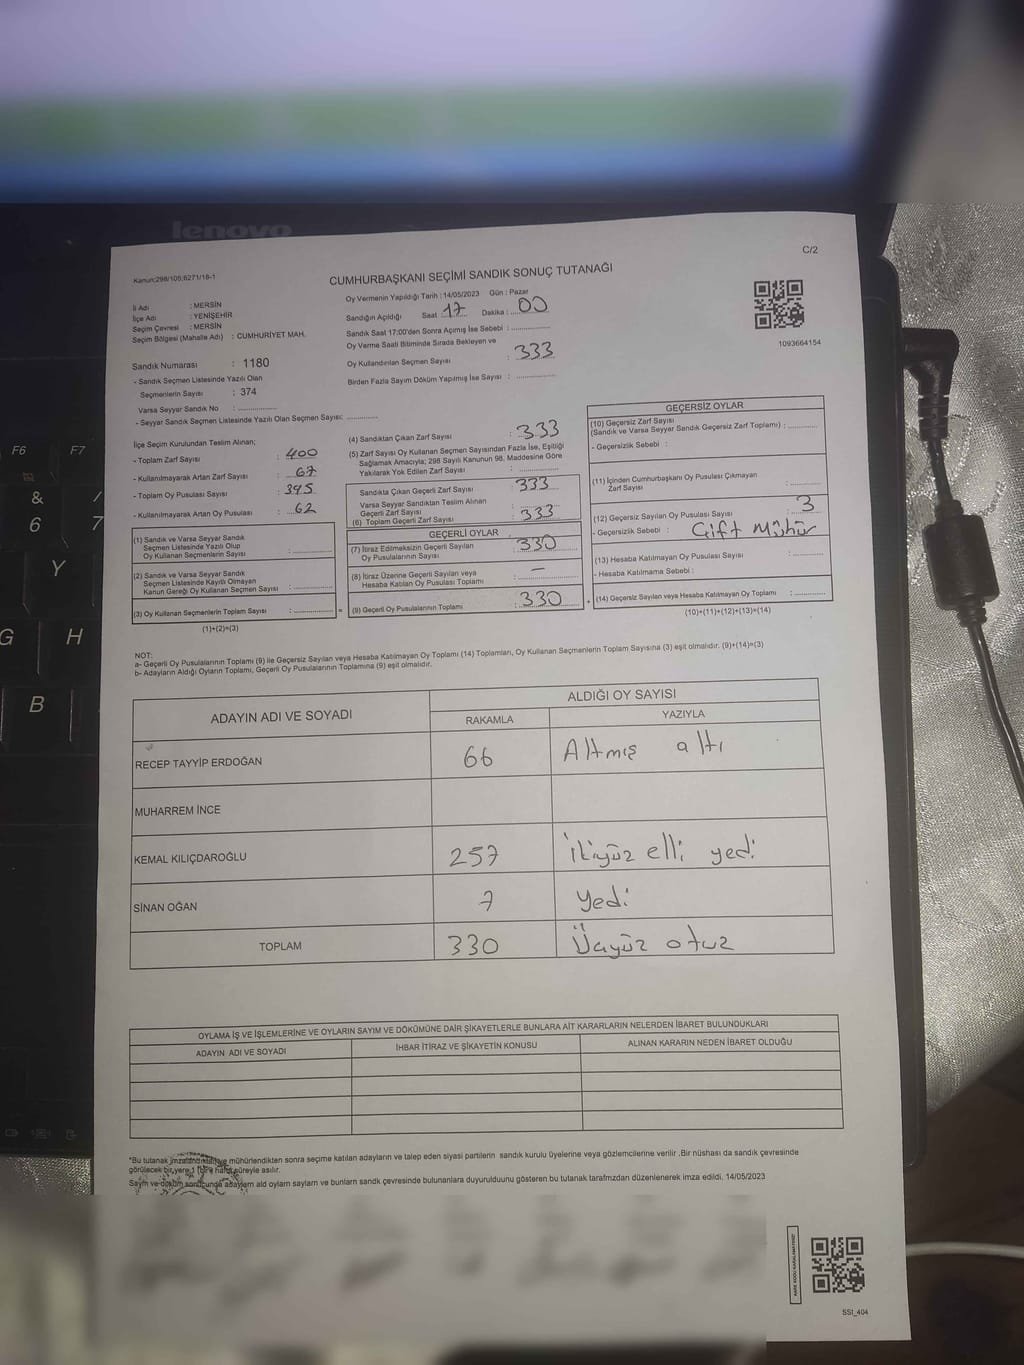 lenovo
C/2
Kanun:298/105;6271/18-1
CUMHURBAŞKANI SEÇİMİ SANDIK SONUÇ TUTANAĞI
İl Adı : MERSİN
İlçe Adı : YENİŞEHİR
Seçim Çevresi : MERSİN
Seçim Bölgesi (Mahalle Adı) : CUMHURİYET MAH.
Oy Vermenin Yapıldığı Tarih : 14/05/2023 Gün : Pazar
Sandığın Açıldığı Saat 17 Dakika : 00
Sandık Saat 17:00'den Sonra Açımış İse Sebebi :
Oy Verme Saati Bitiminde Sırada Bekleyen ve
Oy Kullandırılan Seçmen Sayısı : 333
Birden Fazla Sayım Döküm Yapılmış İse Sayısı :
1093664154
Sandık Numarası : 1180
- Sandık Seçmen Listesinde Yazılı Olan
Seçmenlerin Sayısı : 374
Varsa Seyyar Sandık No :
- Seyyar Sandık Seçmen Listesinde Yazılı Olan Seçmen Sayısı:
İlçe Seçim Kurulundan Teslim Alınan;
- Toplam Zarf Sayısı : 400
- Kullanılmayarak Artan Zarf Sayısı : 67
- Toplam Oy Pusulası Sayısı : 395
- Kullanılmayarak Artan Oy Pusulası : 62
(1) Sandık ve Varsa Seyyar Sandık
Seçmen Listesinde Yazılı Olup
Oy Kullanan Seçmenlerin Sayısı :
(2) Sandık ve Varsa Seyyar Sandık
Seçmen Listesinde Kayıtlı Olmayan
Kanun Gereği Oy Kullanan Seçmen Sayısı :
(3) Oy Kullanan Seçmenlerin Toplam Sayısı : =
(1)+(2)=(3)
(4) Sandıktan Çıkan Zarf Sayısı : 333
(5) Zarf Sayısı Oy Kullanan Seçmen Sayısından Fazla İse, Eşitliği
Sağlamak Amacıyla; 298 Sayılı Kanunun 98. Maddesine Göre
Yakılarak Yok Edilen Zarf Sayısı :
Sandıkta Çıkan Geçerli Zarf Sayısı : 333
Varsa Seyyar Sandıktan Teslim Alınan
Geçerli Zarf Sayısı :
(6) Toplam Geçerli Zarf Sayısı : 333
GEÇERLİ OYLAR
(7) İtiraz Edilmeksizin Geçerli Sayılan
Oy Pusulasının Sayısı : 330
(8) İtiraz Üzerine Geçerli Sayılan veya
Hesaba Katılan Oy Pusulası Toplamı : —
(9) Geçerli Oy Pusulalarının Toplamı : 330 +
GEÇERSİZ OYLAR
(10) Geçersiz Zarf Sayısı
(Sandık ve Varsa Seyyar Sandık Geçersiz Zarf Toplamı) :
- Geçersizlik Sebebi :
(11) İçinden Cumhurbaşkanı Oy Pusulası Çıkmayan
Zarf Sayısı :
(12) Geçersiz Sayılan Oy Pusulası Sayısı : 3
- Geçersizlik Sebebi : Çift Mühür
(13) Hesaba Katılmayan Oy Pusulası Sayısı :
- Hesaba Katılmama Sebebi :
(14) Geçersiz Sayılan veya Hesaba Katılmayan Oy Toplamı :
(10)+(11)+(12)+(13)=(14)
NOT:
a- Geçerli Oy Pusulalarının Toplamı (9) ile Geçersiz Sayılan veya Hesaba Katılmayan Oy Toplamı (14) Toplamları, Oy Kullanan Seçmenlerin Toplam Sayısına (3) eşit olmalıdır. (9)+(14)=(3)
b- Adayların Aldığı Oyların Toplamı, Geçerli Oy Pusulalarının Toplamına (9) eşit olmalıdır.
ADAYIN ADI VE SOYADI
ALDIĞI OY SAYISI
RAKAMLA YAZIYLA
RECEP TAYYİP ERDOĞAN 66 Altmış altı
MUHARREM İNCE
KEMAL KILIÇDAROĞLU 257 ikiyüz elli yedi
SİNAN OĞAN 7 yedi
TOPLAM 330 Üçyüz otuz
OYLAMA İŞ VE İŞLEMLERİNE VE OYLARIN SAYIM VE DÖKÜMÜNE DAİR ŞİKAYETLERLE BUNLARA AİT KARARLARIN NELERDEN İBARET BULUNDUKLARI
ADAYIN ADI VE SOYADI İHBAR İTİRAZ VE ŞİKAYETİN KONUSU ALINAN KARARIN NEDEN İBARET OLDUĞU
*Bu tutanak mühürlendikten sonra seçime katılan adayların ve talep eden siyasi partilerin sandık kurulu üyelerine veya gözlemcilerine verilir .Bir nüshası da sandık çevresinde
görülecek bir yere 1 hafta süreyle asılır.
Sayım ve döküm sonucunda adayların ald oyların sayların ve bunların sandk çevresinde bulunanlara duyurulduunu gösteren bu tutanak tarafmzdan düzenlenerek imza edildi. 14/05/2023
SSI_404
F6
F7
&
6
/
7
Y
G
H
B